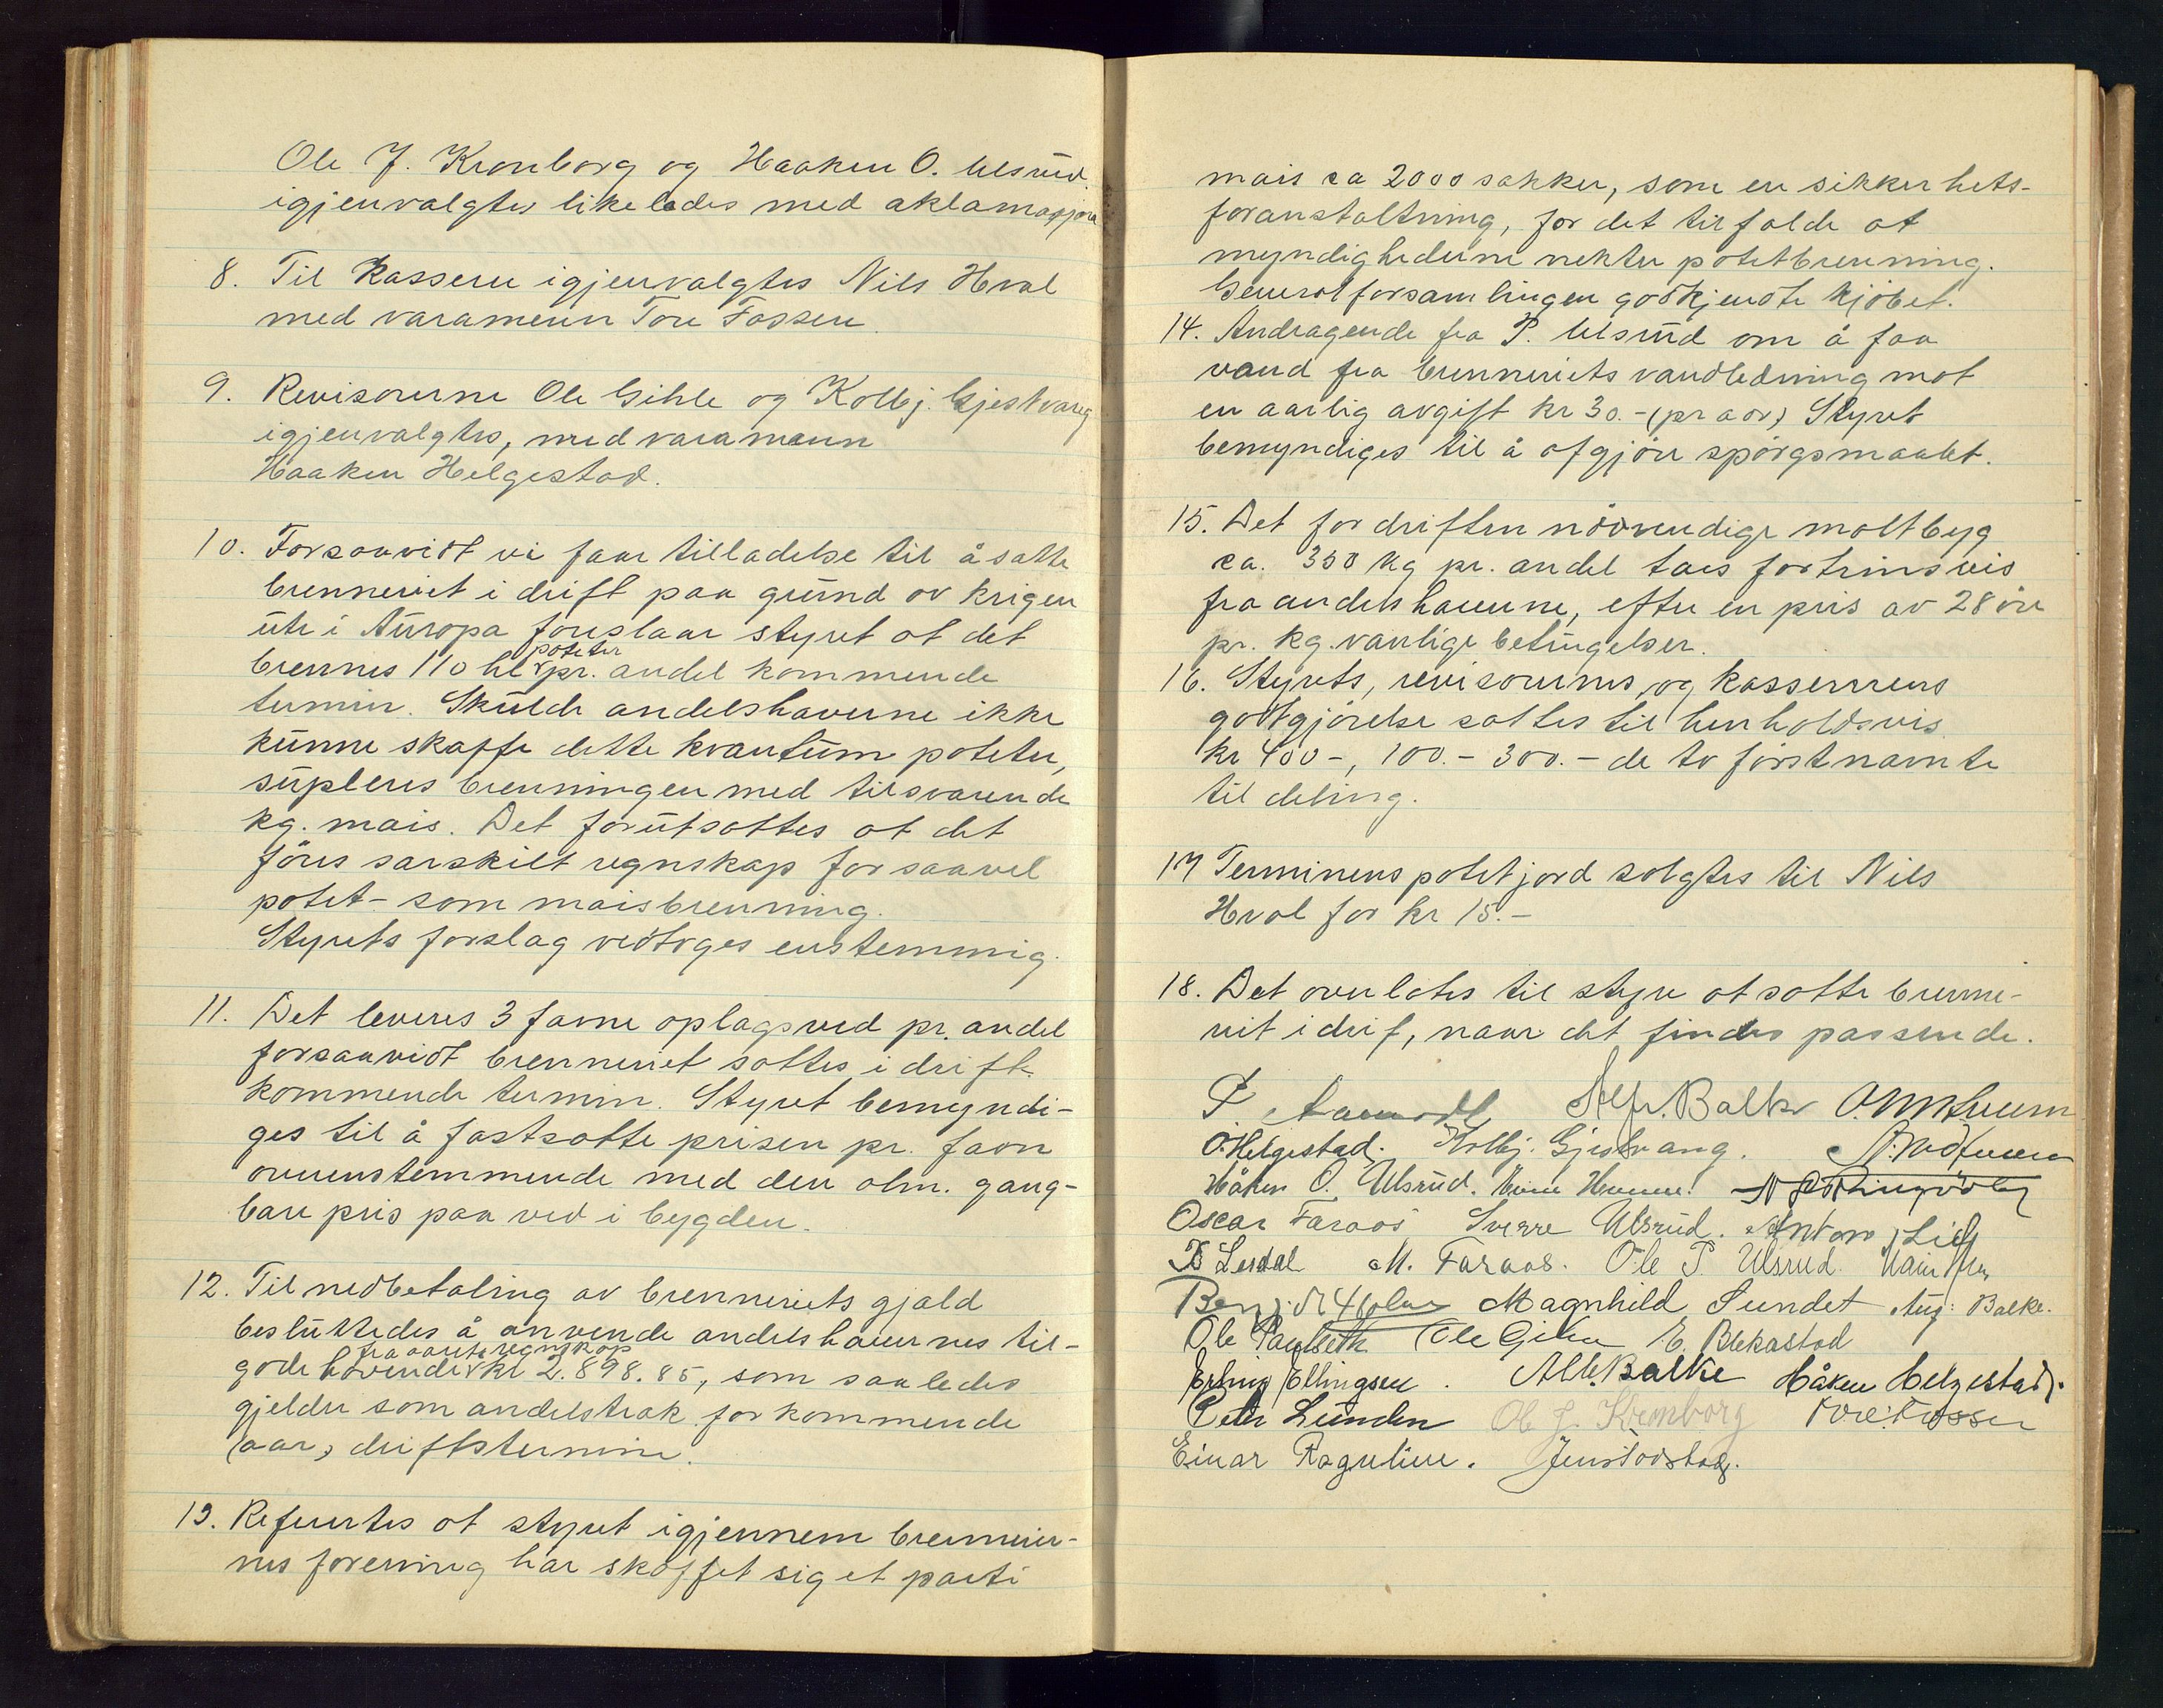 Ole J. Kronborg og Haaken O. Ulsrud.
igjenvalgtes likeledes med aklamasjon
8. Til Kasserer igjenvalgtes Nils Hval
med varamenn Tore Fossen.
9. Revisorerne Ole Gihle og Kolbj. Gjestvang
igjenvalgtes, med varamenn
Haaken Helgestad.
10. Forsaavidt vi faar tilladelse til å satte
brenneriet i drift paa grund av krigen
ute i Auropa foreslaar styret at det
brennes 110 hl poteter pr. andel kommende
termin. Skulde andelshaverne ikke
kunne skaffe dette kvantum poteter,
supleres brenningen med tilsvarende
kg. mais. Det forutsattes at det
föres sarskilt regnskap for saavel
potet- som maisbrenning.
Styrets forslag vedtoges enstemmig.
11. Det leveres 3 favne oplagsved pr. andel
forsaavidt brenneriet sattes i drift
kommende termin. Styret bemyndi-
ges til å fastsatte prisen pr. favn
overenstemmende med den alm. gang-
bare pris paa ved i bygden.
12. Til nedbetaling av brenneriets gjald
besluttedes å anvende andelshavernes til-
gode havende fra aarets regnskap kr 2.898.85, som saaledes
gjelder som andelstrak for kommende
(aar) driftstermin.
13. Refertes at styret igjennem brennerier-
nes forening har skaffet sig et parti
mais ca 2000 sakker, som en sikkerhets-
foranstaltning, for det tilfalde at
myndighederne nekter potetbrenning.
Generalforsamlingen godkjendte kjöbet.
14. Andragende fra P. Ulsrud om å faa
vand fra brenneriets vandledning mot
en aarlig avgift kr 30.- (pr aar) Styret
bemyndiges til å afgjöre spörgsmaalet.
15. Det for driften nödvendige maltbyg
ca. 350 kg pr. andel taes fortrinsvis
fra andelshaverne, efter en pris av 28 öre
pr. kg. vanlige betingelser.
16. Styrets, revisorernes, og kassererens
godtgjörelse sattes til henholdsvis
kr 400-, 100.- 300.- de to förstnavnte
til deling.
17 Terminens potetjord solgtes til Nils
Hval for kr 15.-
18. Det overlates til styre at satte brenne-
riet i drif, naar det findes passende.
P Alfr. Balke
O. Helgestad. Kolbj. Gjestvang.
Håken O. Ulsrud.
Oscar Faraos Sverre Ulsrud. Anton Lie
Lesdal M. Faraos. Ole P. Ulsrud.
Magnhild Sundet Aug: Balke.
Ole Paulseth Ole Gihle E. Blekastad
Erling Ellingsen. Balke Håken Helgestad.
Petr Lunden Ole J. Kronborg Tore Fossen
Einar Ragnlien. Jens